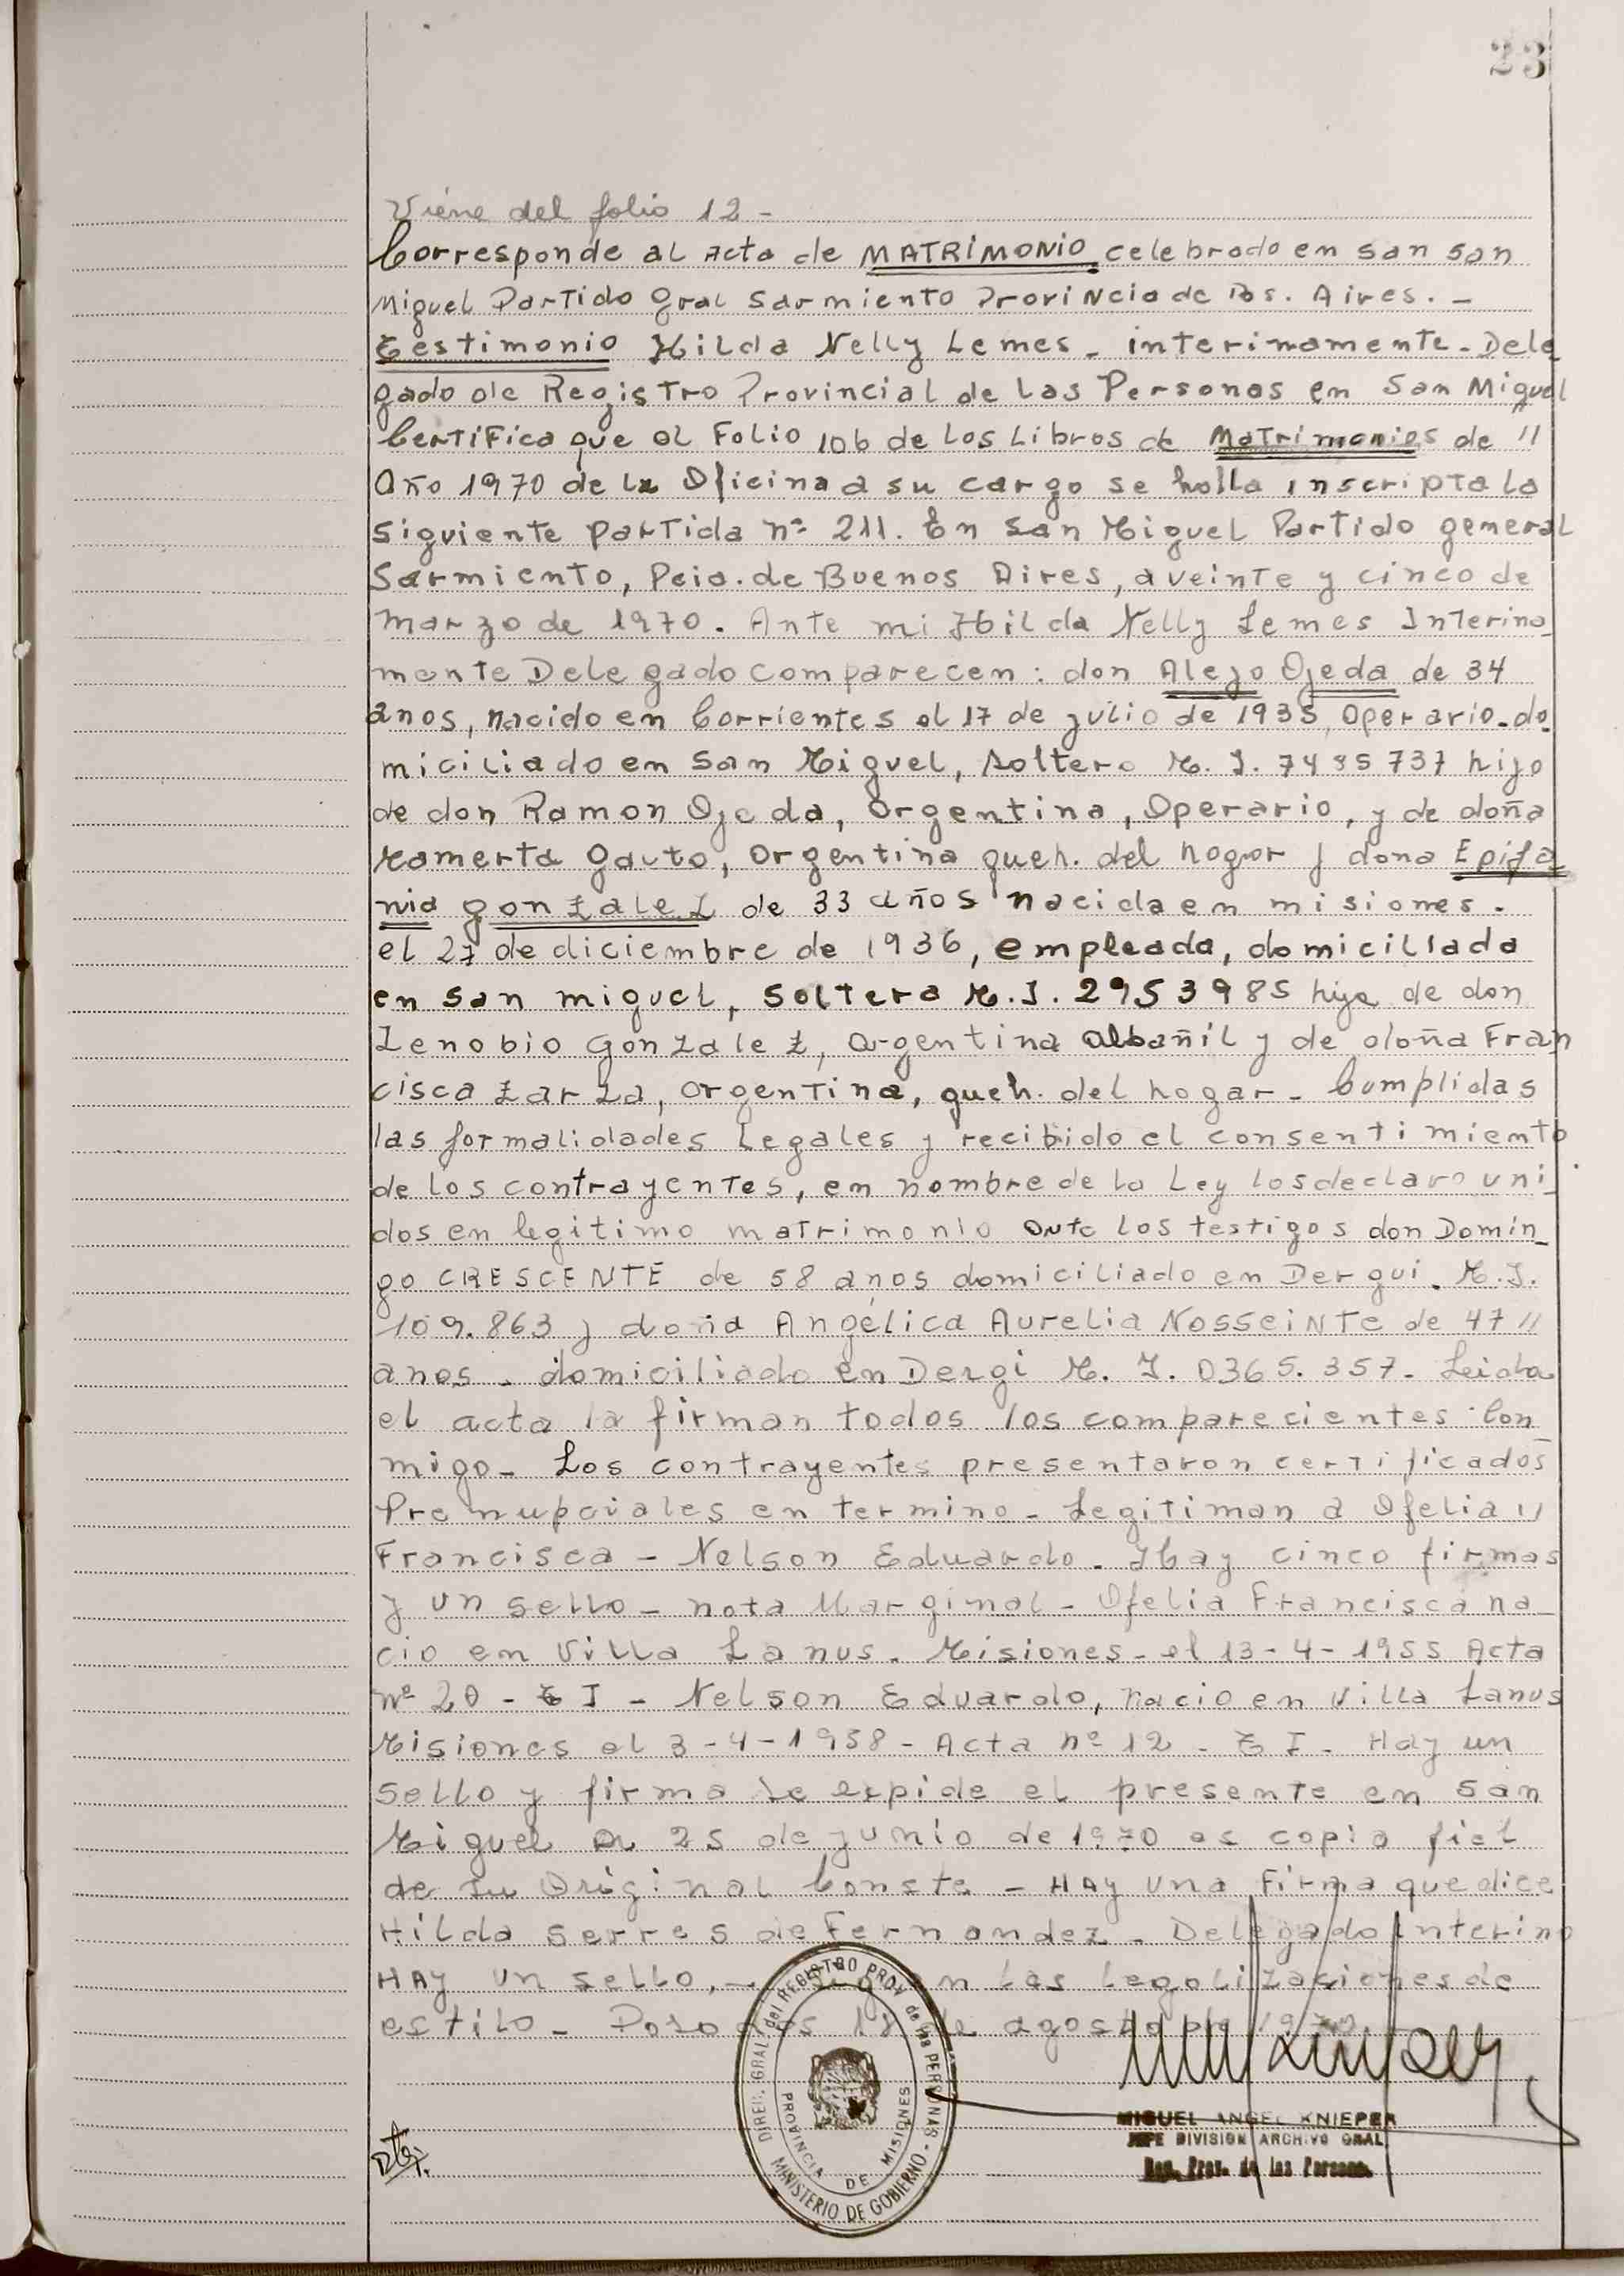 23
Viene del folio 12 -
Corresponde al Acta de MATRIMONIO celebrado en San San
Miguel Partido Gral Sarmiento Provincia de Bs. Aires. -
Testimonio Hilda Nelly Lemes - interinamente - Dele
gado de Registro Provincial de las Personas en San Miguel
Certifica que al Folio 106 de los Libros de Matrimonios de "
Año 1970 de la Oficina a su cargo se halla inscripta la
siguiente partida nº 211. En San Miguel Partido general
Sarmiento, Pcia. de Buenos Aires, a veinte y cinco de
marzo de 1970. Ante mi Hilda Nelly Lemes Interina_
mente Delegado comparecen: don Alejo Ojeda de 34
anos, nacido en Corrientes el 17 de julio de 1935, Operario - do_
miciliado en San Miguel, soltero M. I. 7495737 hijo
de don Ramon Ojeda, Argentina, Operario, y de doña
Mamerta Gauto, Argentina queh. del hogar y dona Epifa
nia gonzalez de 33 años nacida en misiones.
el 27 de diciembre de 1936, empleada, domiciliada
en San miguel, Soltera M. I. 2953985 hija de don
Zenobio Gonzalez, argentina albañil y de doña Fran
cisca Zarza, Argentina, queh. del hogar - Cumplidas
las formalidades Legales y recibido el consentimiento
de los contrayentes, en nombre de la Ley los declaro uni_
dos en legitimo matrimonio ante los testigos don Domin_
go CRESCENTE de 58 anos domiciliado en Derqui. M. I.
109.863 y doña Angélica Aurelia Nosseinte de 47 "
anos - domiciliado en Derqi M. I. 0365.357 - Leida
el acta la firman todos los comparecientes Con_
migo - Los contrayentes presentaron certificados
Prenupciales en termino - Legitiman a Ofelia "
Francisca - Nelson Eduardo - Hay cinco firmas
y un sello - nota Marginal - Ofelia Francisca na_
cio en Villa Lanus. Misiones - el 13-4-1955 Acta
nº 20 - T I - Nelson Eduardo, nacio en Villa Lanus
Misiones el 3-4-1958 - Acta nº 12 - T I - Hay un
sello y firma Se expide el presente en San
Miguel a 25 de junio de 1970 es copia fiel
de su Original Conste - HAY una firma que dice
Hilda Serres de Fernandez - Delegado Interino
HAY un sello, - Siguen las Legalizaciones de
estilo - Posadas 18 de agosto de 1970.
DIREC. GRAL. del REGISTRO PROV. de las PERSONAS - MINISTERIO DE GOBIERNO -
PROVINCIA DE MISIONES
MIGUEL ANGEL KNIEPER
JEFE DIVISION ARCHIVO GRAL.
Reg. Prov. de las Personas